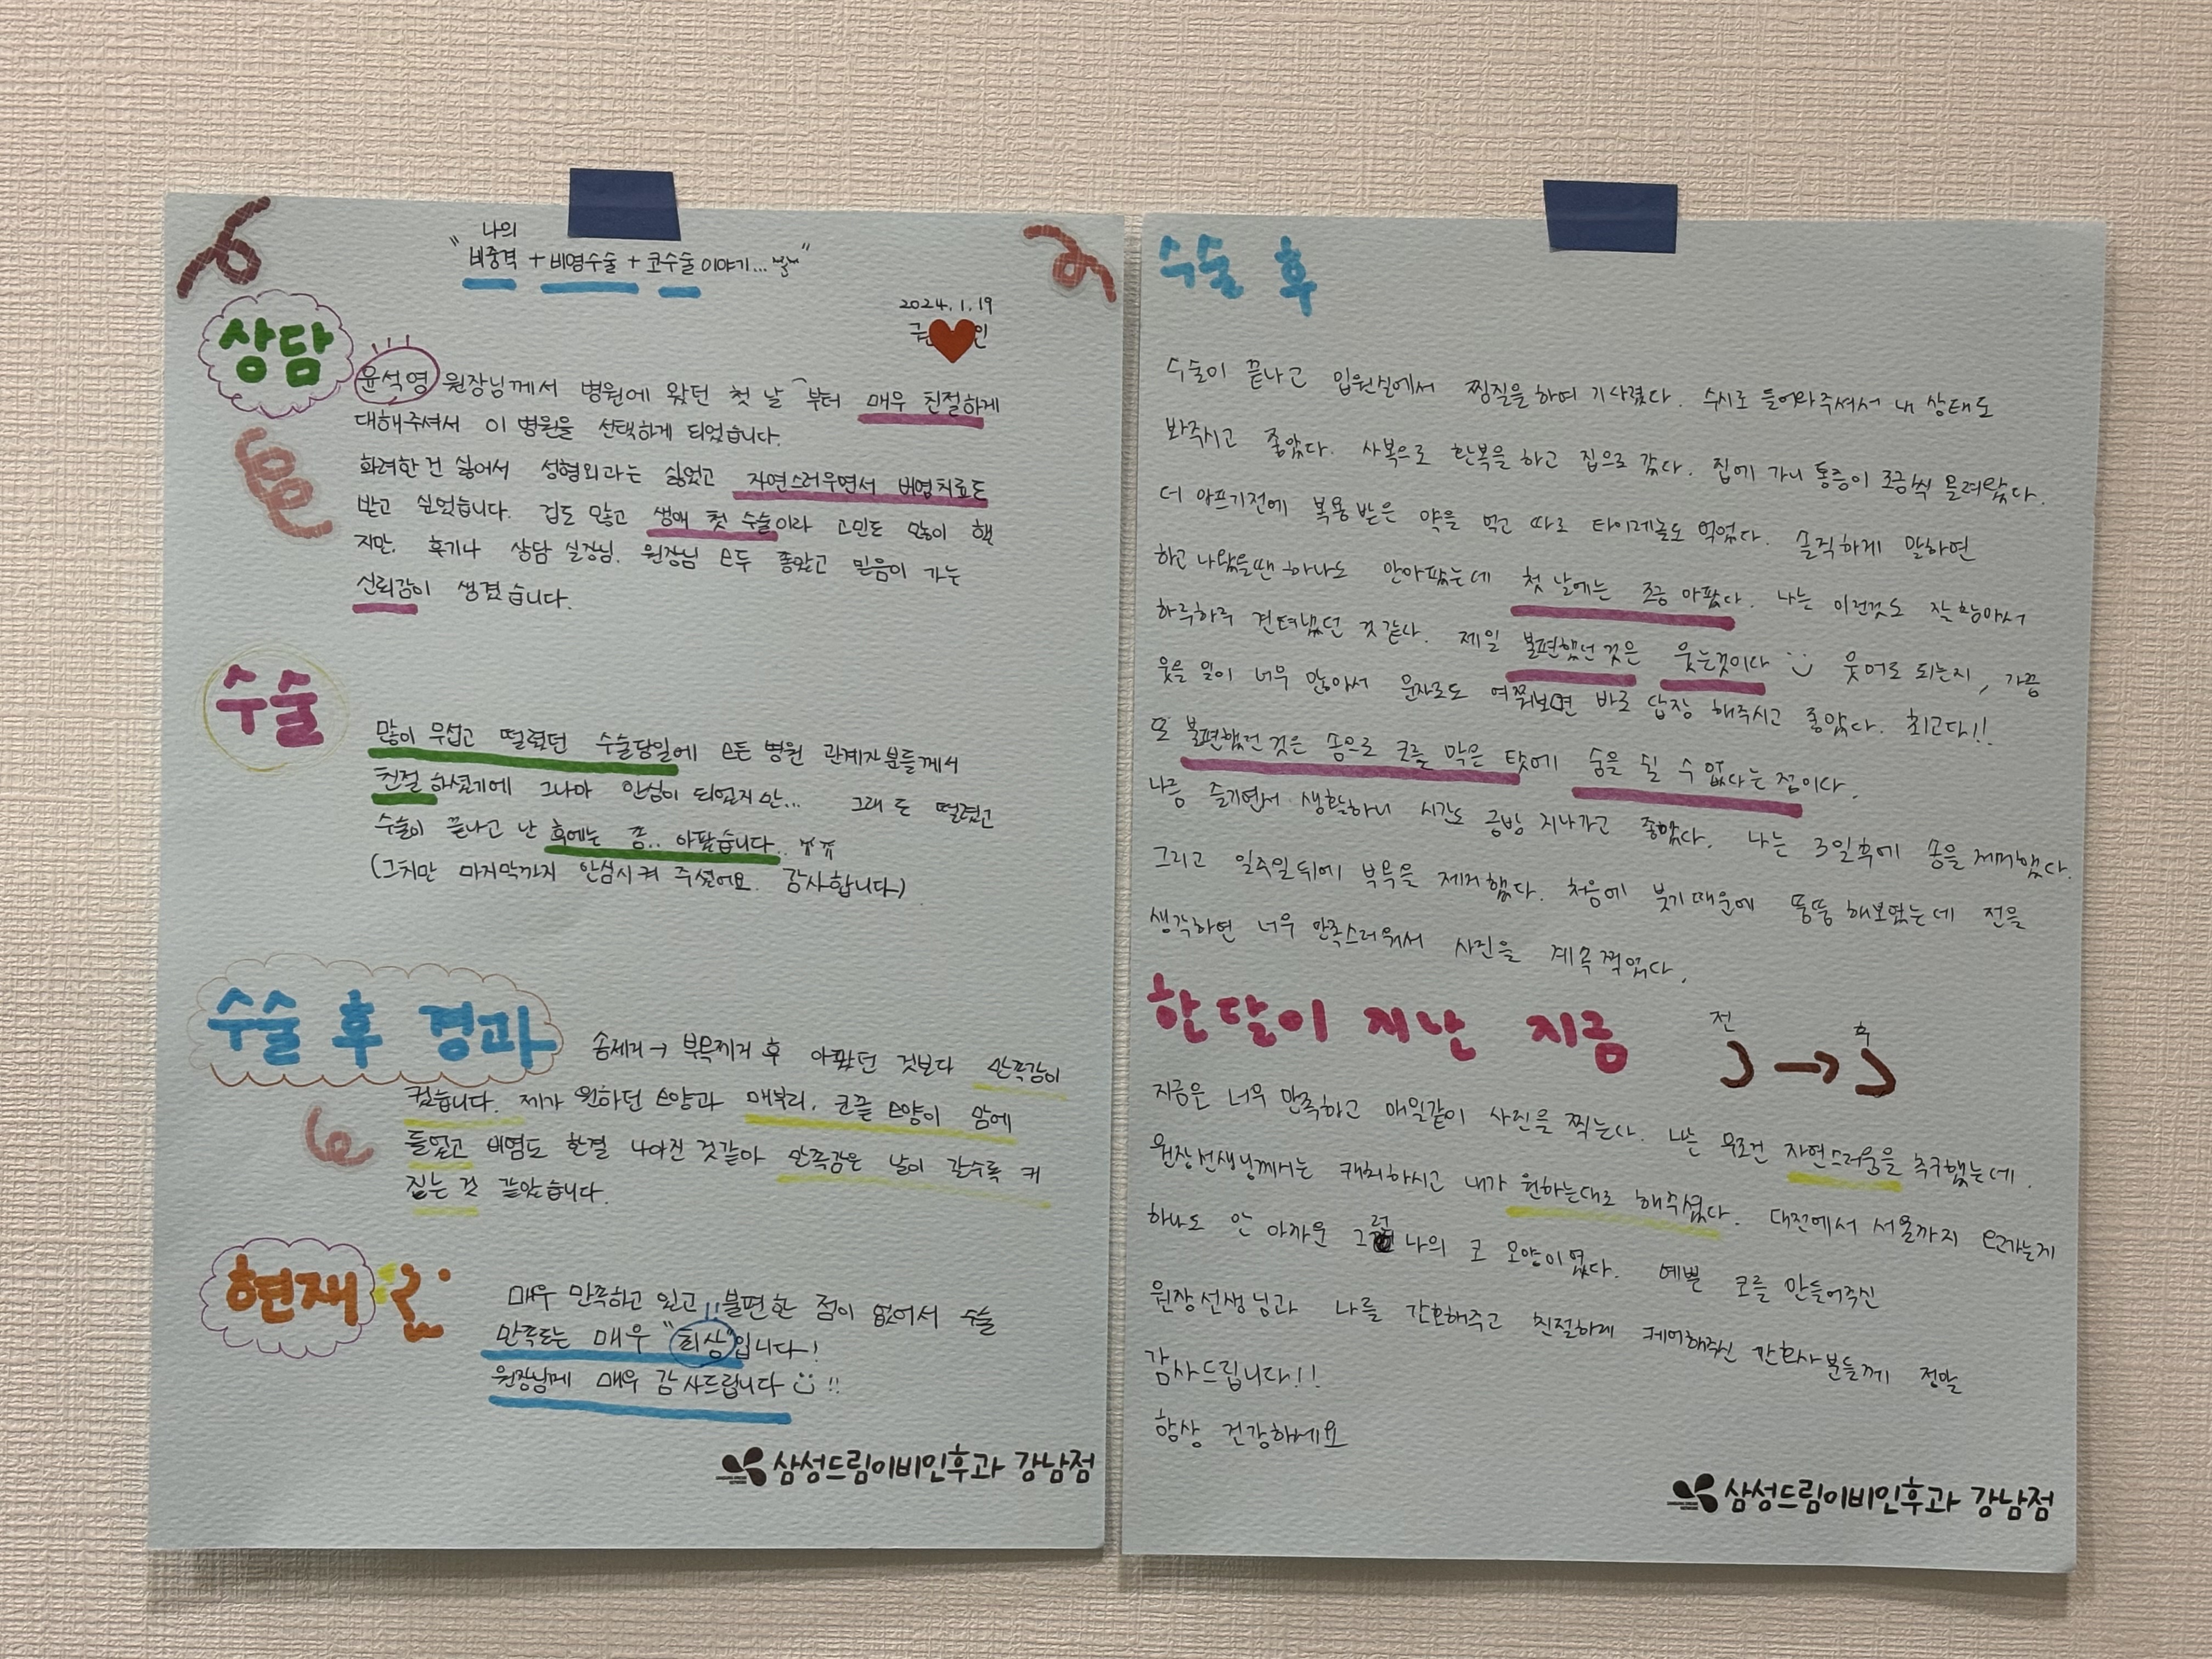 나의
"비중격 + 비염수술 + 코수술 이야기..."
2024.1.19
상담
윤석영 원장님께서 병원에 왔던 첫 날 부터 매우 친절하게
대해주셔서 이 병원을 선택하게 되었습니다.
화려한 건 싫어서 성형외과는 싫었고 자연스러우면서 비염치료도
받고 싶었습니다. 겁도 많고 생애 첫 수술이라 고민도 많이 했
지만, 후기나 상담 실장님, 원장님 모두 좋았고 믿음이 가는
신뢰감이 생겼습니다.
수술
많이 무섭고 떨렸던 수술당일에 모든 병원 관계자분들께서
친절 하셨기에 그나마 안심이 되었지만... 그래도 떨렸고
수술이 끝나고 난 후에는 쫌.. 아팠습니다.. ㅠㅠ
(그치만 마지막까지 안심시켜 주셨어요. 감사합니다)
수술 후 경과
솜제거 → 부목제거 후 아팠던 것보다 만족감이
컸습니다. 제가 원하던 모양과 매부리, 코끝 모양이 맘에
들었고 비염도 한결 나아진 것같아 만족감은 날이 갈수록 커
지는 것 같았습니다.
현재
매우 만족하고 있고 불편한 점이 없어서 수술
만족도는 매우 "최상"입니다!
원장님께 매우 감사드립니다 !!
삼성드림이비인후과 강남점
수술 후
수술이 끝나고 입원실에서 찜질을 하며 기다렸다. 수시로 들어와주셔서 내 상태도
봐주시고 좋았다. 사복으로 환복을 하고 집으로 갔다. 집에 가니 통증이 조금씩 몰려왔다.
더 아프기전에 복용 받은 약을 먹고 따로 타이레놀도 먹었다. 솔직하게 말하면
하고 나왔을땐 하나도 안아팠는데 첫 날에는 조금 아팠다. 나는 이런것도 잘 참아서
하루하루 견뎌냈던 것 같다. 제일 불편했던 것은 웃는것이다 웃어도 되는지, 가끔
웃을 일이 너무 많아서 문자로도 여쭤보면 바로 답장 해주시고 좋았다. 최고다!!
또 불편했던 것은 솜으로 코를 막은 탓에 숨을 쉴 수 없다는 점이다.
나름 즐기면서 생활하니 시간도 금방 지나가고 좋았다. 나는 3일후에 솜을 제거했다.
그리고 일주일뒤에 부목을 제거했다. 처음에 붓기때문에 뚱뚱 해보였는데 전을
생각하면 너무 만족스러워서 사진을 계속 찍었다.
한달이 지난 지금
전 → 후
지금은 너무 만족하고 매일같이 사진을 찍는다. 나는 무조건 자연스러움을 추구했는데.
원장선생님께서는 캐치하시고 내가 원하는대로 해주셨다. 대전에서 서울까지 오가는게
하나도 안 아까운 그런 나의 코 모양이였다. 예쁜 코를 만들어주신
원장선생님과 나를 간호해주고 친절하게 케어해주신 간호사분들께 정말
감사드립니다!!
항상 건강하세요
삼성드림이비인후과 강남점